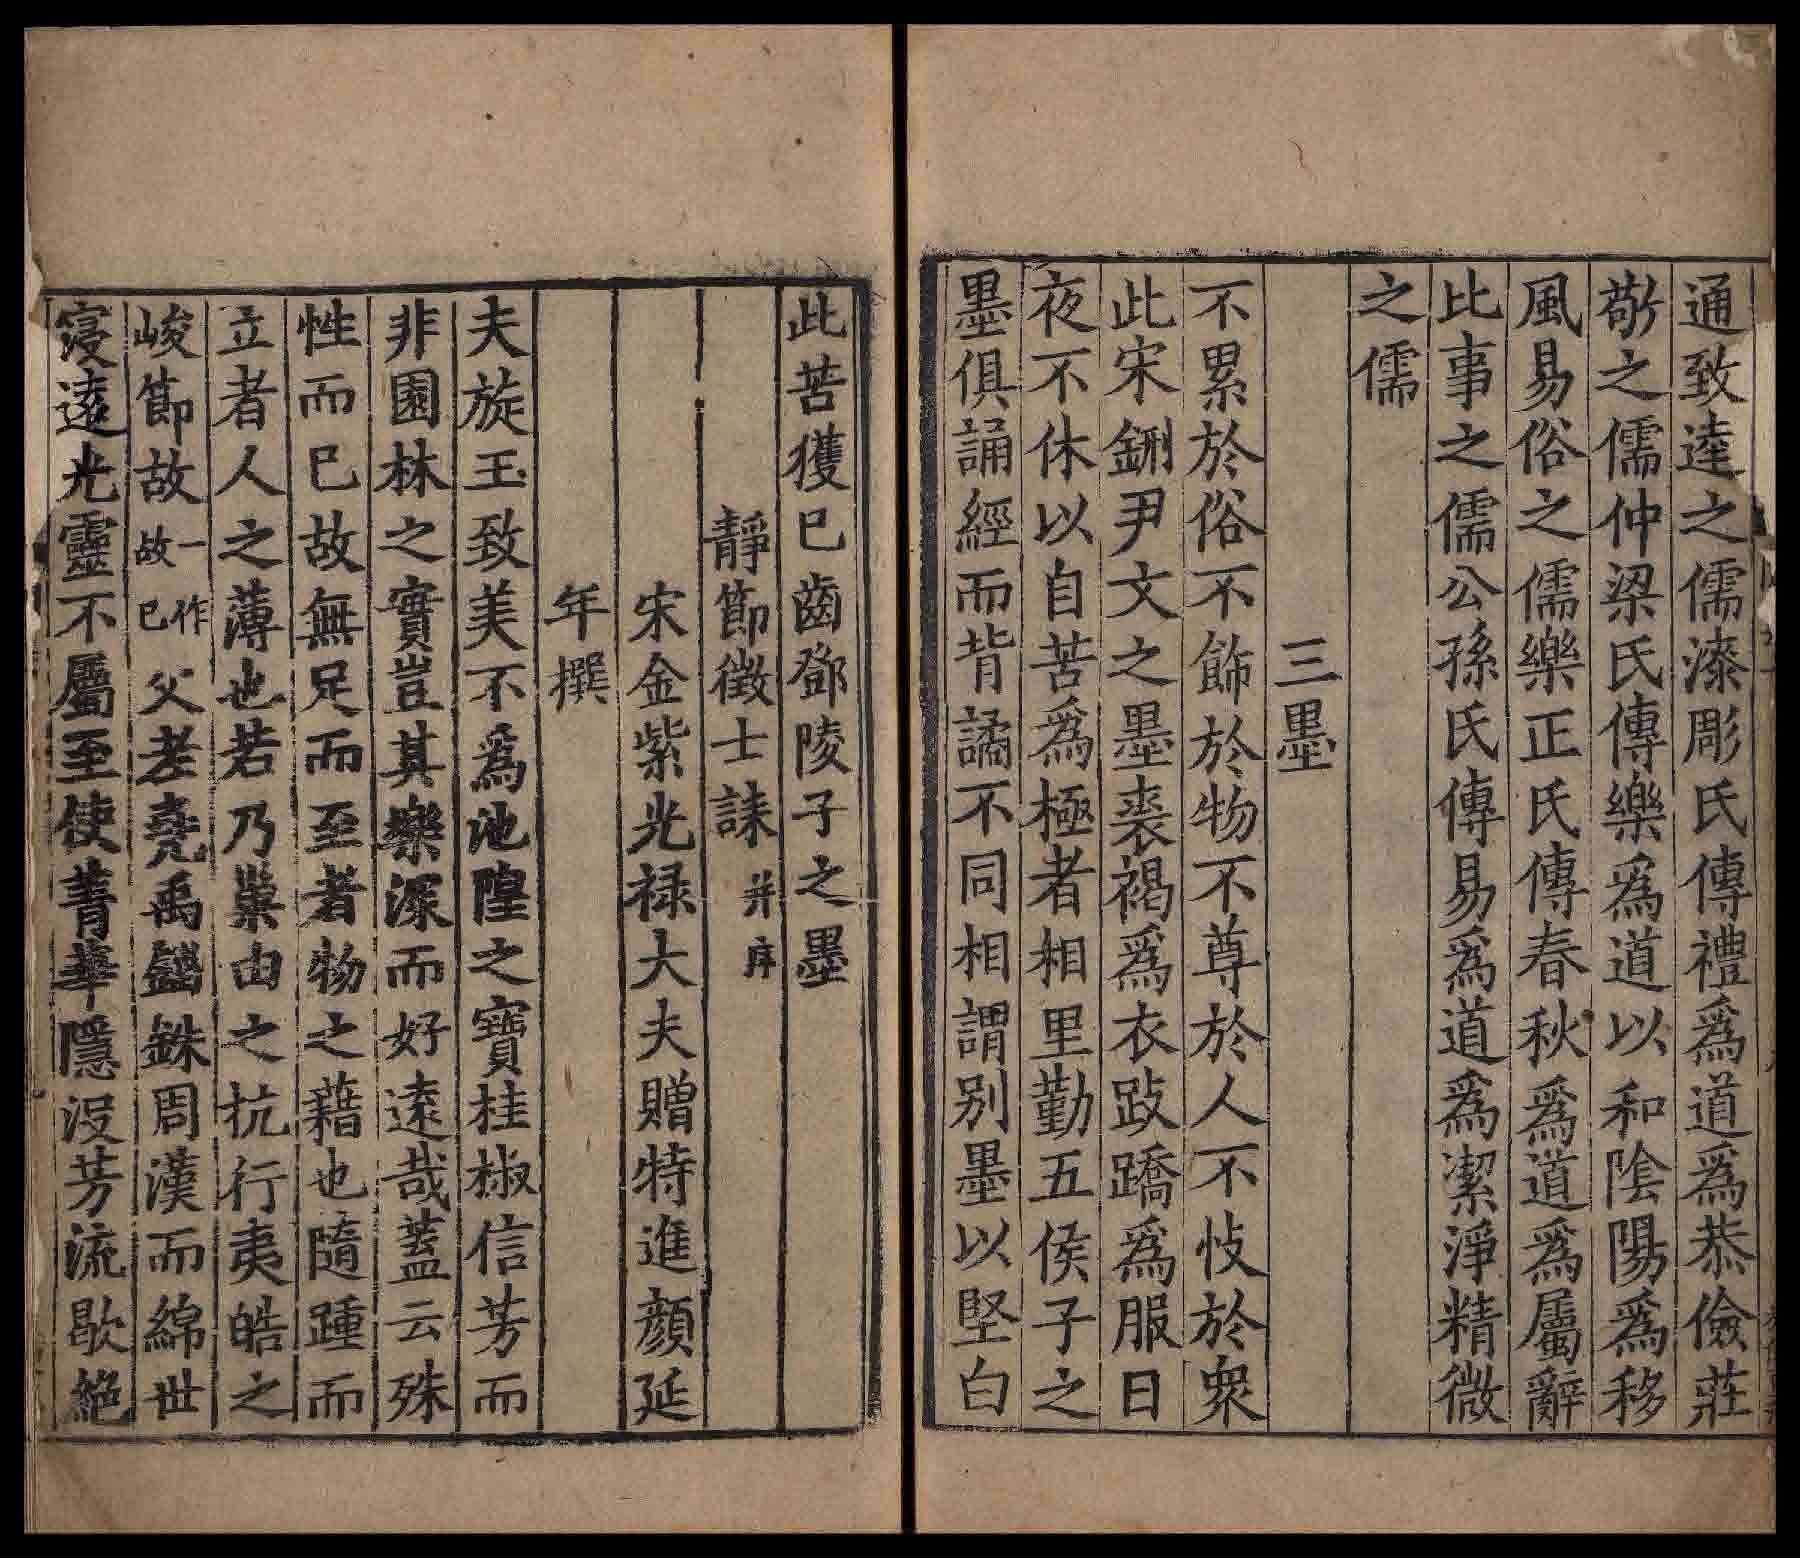 通致逵之儒漆彫氏傳禮爲道爲恭儉莊
敬之儒仲梁氏傳樂爲道以和陰陽爲移
風易俗之儒樂正氏傳春秋爲道爲屬辭
比事之儒公孫氏傳易爲道爲潔淨精微
之儒
三墨
不累於俗不飾於物不尊於人不忮於衆
此宋鈃尹文之墨裘褐爲衣跂蹻爲服日
夜不休以自苦爲極者相里勤五侯子之
墨俱誦經而背譎不同相謂別墨以堅白
此苦獲已齒鄧陵子之墨
靜節徵士誄并序
宋金紫光禄大夫贈特進顔延
年撰
夫旋玉致美不爲池隍之寶桂椒信芳而
非園林之實豈其樂深而好遠哉蓋云殊
性而已故無足而至者物之藉也隨踵而
立者人之薄也若乃巢由之抗行夷皓之
峻節故故一作已父老堯禹錙銖周漢而綿世
寖遠光靈不屬至使菁華隱没芳流歇絶